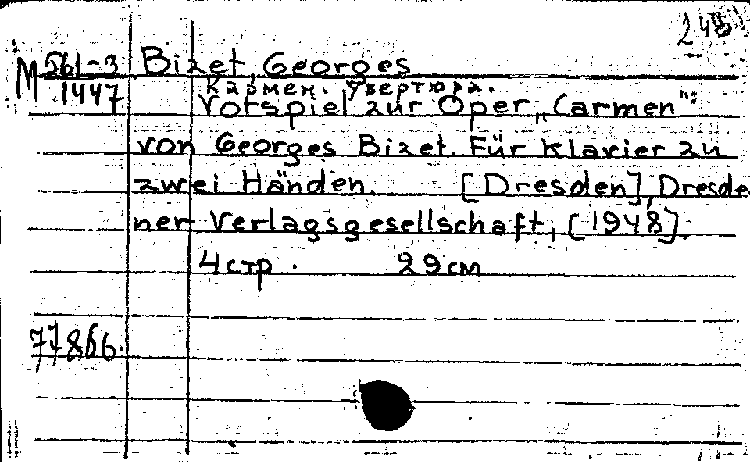 248
М 561-3 Bizet, Georges
1447 Кармен. Увертюра.
Vorspiel zur Oper „Carmen":
von Georges Bizet. Für Klavier zu
zwei Händen. [Dresden], Dresde
ner Verlagsgesellschaft, [1948].
4 стр. 29 см
77866.